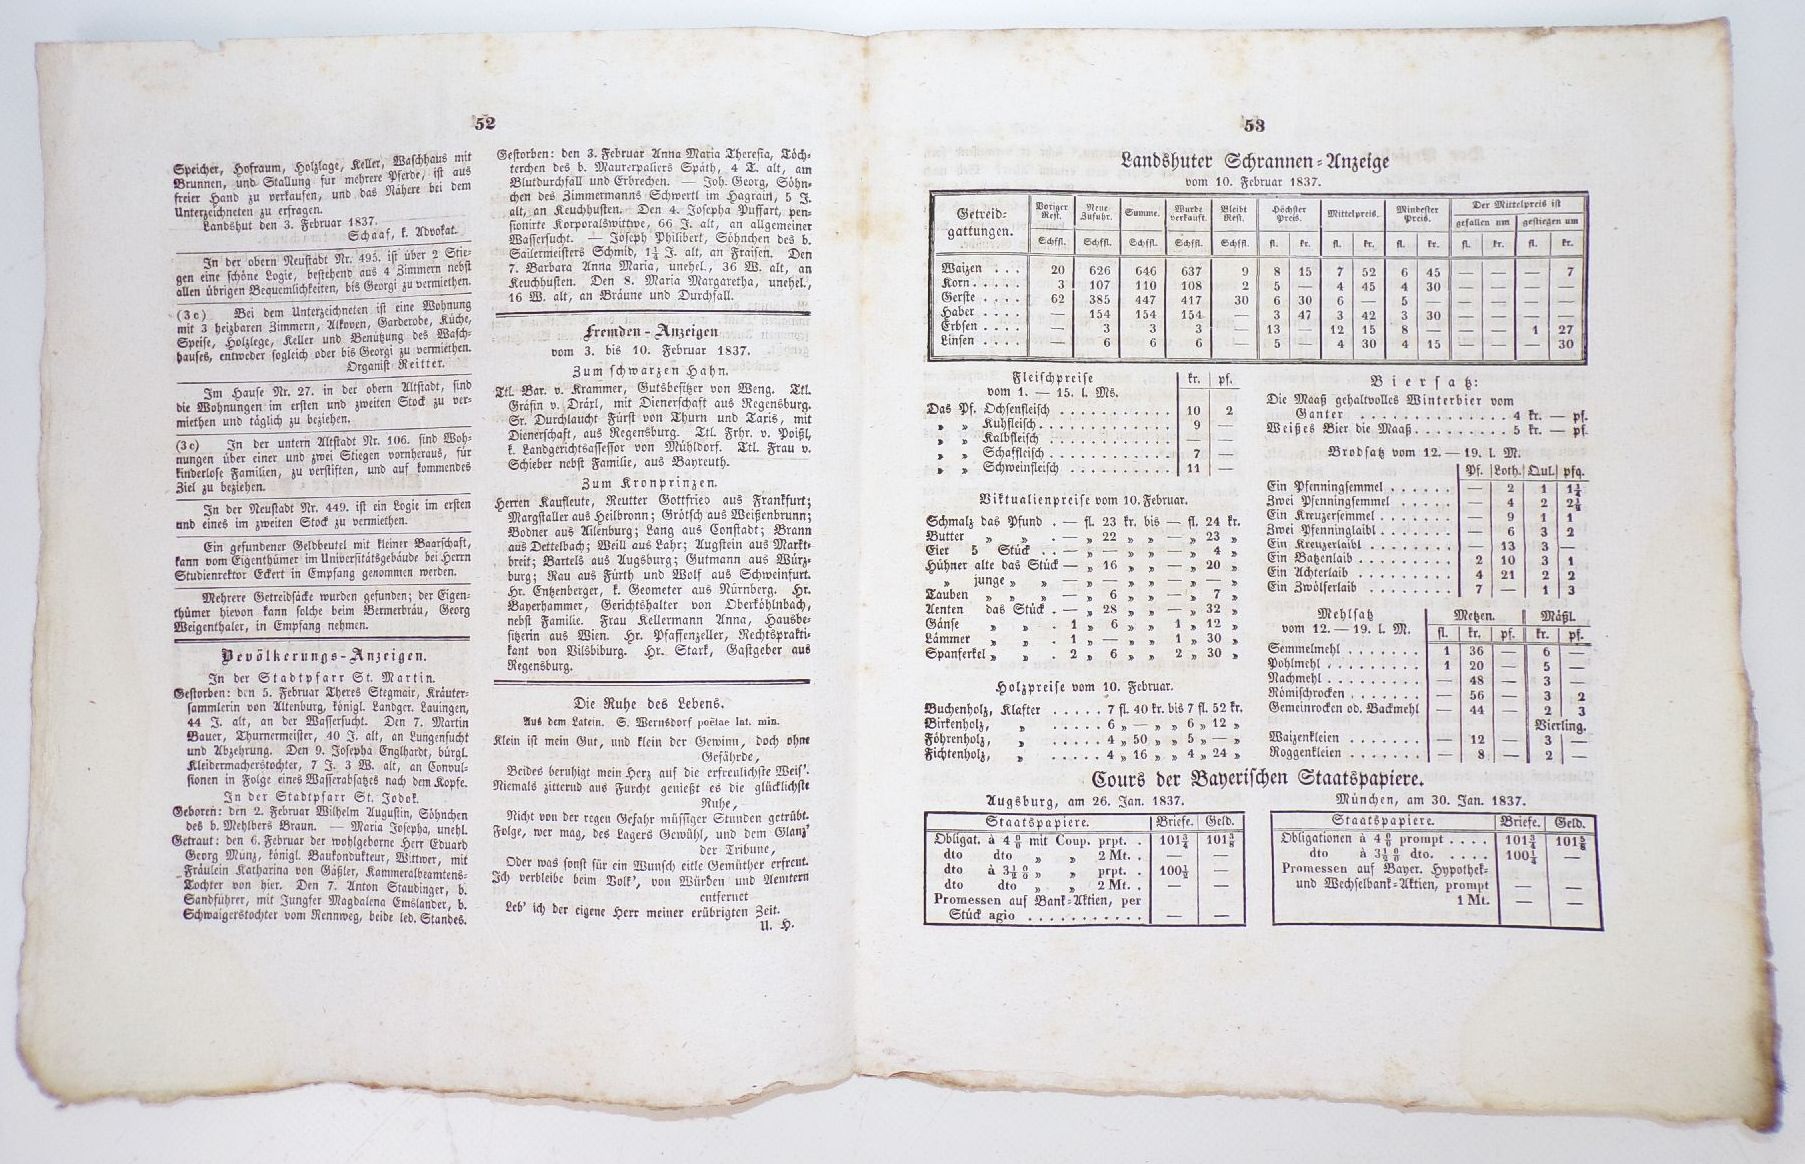 52
Speicher, Hofraum, Holzlage, Keller, Waschhaus mit
Brunnen, und Stallung für mehrere Pferde, ist aus
freier Hand zu verkaufen, und das Nähere bei dem
Unterzeichneten zu erfragen.
Landshut den 3. Februar 1837.
Schaaf, k. Advokat.
In der obern Neustadt Nr. 495. ist über 2 Stie-
gen eine schöne Logie, bestehend aus 4 Zimmern nebst
allen übrigen Bequemlichkeiten, bis Georgi zu vermiethen.
(3c) Bei dem Unterzeichneten ist eine Wohnung
mit 3 heizbaren Zimmern, Alkoven, Garderobe, Küche,
Speise, Holzlege, Keller und Benützung des Wasch-
hauses, entweder sogleich oder bis Georgi zu vermiethen.
Organist Reitter.
Im Hause Nr. 27. in der obern Altstadt, sind
die Wohnungen im ersten und zweiten Stock zu ver-
miethen und täglich zu beziehen.
(3c) In der untern Altstadt Nr. 106. sind Woh-
nungen über einer und zwei Stiegen vornheraus, für
kinderlose Familien, zu verstiften, und auf kommendes
Ziel zu beziehen.
In der Neustadt Nr. 449. ist ein Logie im ersten
und eines im zweiten Stock zu vermiethen.
Ein gefundener Geldbeutel mit kleiner Baarschaft,
kann vom Eigenthümer im Universitätsgebäude bei Herrn
Studienrektor Eckert in Empfang genommen werden.
Mehrere Getreidsäcke wurden gefunden; der Eigen-
thümer hievon kann solche beim Bermerbräu, Georg
Weigenthaler, in Empfang nehmen.
Bevölkerungs-Anzeigen.
In der Stadtpfarr St. Martin.
Gestorben: den 5. Februar Theres Stegmair, Kräuter-
sammlerin von Altenburg, königl. Landger. Lauingen,
44 J. alt, an der Wassersucht. Den 7. Martin
Bauer, Thurnermeister, 40 J. alt, an Lungensucht
und Abzehrung. Den 9. Josepha Englhardt, bürgl.
Kleidermacherstochter, 7 J. 3 W. alt, an Convul-
sionen in Folge eines Wasserabsatzes nach dem Kopfe.
In der Stadtpfarr St. Jodok.
Geboren: den 2. Februar Wilhelm Augustin, Söhnchen
des b. Mehlbers Braun. — Maria Josepha, unehl.
Getraut: den 6. Februar der wohlgeborne Herr Eduard
Georg Münz, königl. Baukondukteur, Wittwer, mit
Fräulein Katharina von Gäßler, Kammeralbeamtens-
Tochter von hier. Den 7. Anton Staudinger, b.
Sandführer, mit Jungfer Magdalena Emslander, b.
Schwaigerstochter vom Rennweg, beide led. Standes.
Gestorben: den 3. Februar Anna Maria Theresia, Töch-
terchen des b. Maurerpaliers Späth, 4 T. alt, am
Blutdurchfall und Erbrechen. — Joh. Georg, Söhn-
chen des Zimmermanns Schwertl im Hagrain, 5 J.
alt, an Keuchhusten. Den 4. Josepha Puffart, pen-
sionirte Korporalswittwe, 66 J. alt, an allgemeiner
Wassersucht. Joseph Philibert, Söhnchen des b.
Sailermeisters Schmid, 1¼ J. alt, an Fraisen. Den
7. Barbara Anna Maria, unehel., 36 W. alt, an
Keuchhusten. Den 8. Maria Margaretha, unehel.,
16 W. alt, an Bräune und Durchfall.
Fremden-Anzeigen
vom 3. bis 10. Februar 1837.
Zum schwarzen Hahn.
Ttl. Bar. v. Krammer, Gutsbesitzer von Weng. Ttl.
Gräfin v. Drärl, mit Dienerschaft aus Regensburg.
Sr. Durchlaucht Fürst von Thurn und Taxis, mit
Dienerschaft, aus Regensburg. Ttl. Frhr. v. Poißl,
k. Landgerichtsassessor von Mühldorf. Ttl. Frau v.
Schieber nebst Familie, aus Bayreuth.
Zum Kronprinzen.
Herren Kaufleute, Reutter Gottfried aus Frankfurt;
Margstaller aus Heilbronn; Grötsch aus Weißenbrunn;
Bodner aus Altenburg; Lang aus Constadt; Brann
aus Dettelbach; Weill aus Lahr; Augstein aus Markt-
breit; Bartels aus Augsburg; Gutmann aus Würz-
burg; Rau aus Fürth und Wolf aus Schweinfurt.
Hr. Entzenberger, k. Geometer aus Nürnberg. Hr.
Bayerhammer, Gerichtshalter von Oberköhlnbach,
nebst Familie. Frau Kellermann Anna, Hausbe-
sitzerin aus Wien. Hr. Pfaffenzeller, Rechtsprakti-
kant von Vilsbiburg. Hr. Stark, Gastgeber aus
Regensburg.
Die Ruhe des Lebens.
Aus dem Latein. S. Wernsdorf poëtae lat. min.
Klein ist mein Gut, und klein der Gewinn, doch ohne
Gefährde,
Beides beruhigt mein Herz auf die erfreulichste Weis'.
Niemals zitternd aus Furcht genießt es die glücklichste
Ruhe,
Nicht von der regen Gefahr müssiger Stunden getrübt.
Folge, wer mag, des Lagers Gewühl, und dem Glanz'
der Tribune,
Oder was sonst für ein Wunsch eitle Gemüther erfreut.
Ich verbleibe beim Volk', von Würden und Aemtern
entfernet
Leb' ich der eigene Herr meiner erübrigten Zeit.
U. H.
53
Landshuter Schrannen-Anzeige
vom 10. Februar 1837.
Getreid-gattungen. Voriger Rest. Neue Zufuhr. Summe. Wurde verkauft. Bleibt Rest. Höchster Preis. Mittelpreis. Mindester Preis. Der Mittelpreis ist
gefallen um gestiegen um
Schffl. Schffl. Schffl. Schffl. Schffl. fl. kr. fl. kr. fl. kr. fl. kr. fl. kr.
Waizen . . . 20 626 646 637 9 8 15 7 52 6 45 — — — 7
Korn . . . . . 3 107 110 108 2 5 — 4 45 4 30 — — — —
Gerste . . . . 62 385 447 417 30 6 30 6 — 5 — — — — —
Haber . . . . — 154 154 154 — 3 47 3 42 3 30 — — — —
Erbsen . . . . — 3 3 3 — 13 — 12 15 8 — — — 1 27
Linsen . . . . — 6 6 6 — 5 — 4 30 4 15 — — — 30
Fleischpreise kr. pf.
vom 1. — 15. l. Ms.
Das Pf. Ochsenfleisch . . . . . . . . . . . 10 2
„ „ Kuhfleisch . . . . . . . . . . . . 9 —
„ „ Kalbfleisch . . . . . . . . . . . — —
„ „ Schaffleisch . . . . . . . . . . . 7 —
„ „ Schweinfleisch . . . . . . . . . . 11 —
Viktualienpreise vom 10. Februar.
Schmalz das Pfund . — fl. 23 kr. bis — fl. 24 kr.
Butter „ „ . — „ 22 „ „ — „ 23 „
Eier 5 Stück . . — „ — „ „ — „ 4 „
Hühner alte das Stück — „ 16 „ „ — „ 20 „
„ junge „ „ — „ — „ „ — „ — „
Tauben „ „ „ — „ 6 „ „ — „ 7 „
Aenten das Stück . — „ 28 „ „ — „ 32 „
Gänse „ „ . 1 „ 6 „ „ 1 „ 12 „
Lämmer „ „ . 1 „ — „ „ 1 „ 30 „
Spanferkel „ „ . 2 „ 6 „ „ 2 „ 30 „
Holzpreise vom 10. Februar.
Buchenholz, Klafter . . . . . 7 fl. 40 kr. bis 7 fl. 52 kr.
Birkenholz, „ . . . . . 6 „ — „ „ 6 „ 12 „
Föhrenholz, „ . . . . . 4 „ 50 „ „ 5 „ — „
Fichtenholz, „ . . . . . 4 „ 16 „ „ 4 „ 24 „
Biersatz:
Die Maaß gehaltvolles Winterbier vom
Ganter . . . . . . . . . . . . . . 4 kr. — pf.
Weißes Bier die Maaß . . . . . . . . . 5 kr. — pf.
Brodsatz vom 12. — 19. l. M.
Pf. Loth. Qul pfg.
Ein Pfenningsemmel . . . . . . — 2 1 1¼
Zwei Pfenningsemmel . . . . . . — 4 2 2½
Ein Kreuzersemmel . . . . . . . — 9 1 1
Zwei Pfenninglaibl . . . . . . . — 6 3 2
Ein Kreuzerlaibl . . . . . . . . — 13 3 —
Ein Batzenlaib . . . . . . . . . 2 10 3 1
Ein Achterlaib . . . . . . . . . 4 21 2 2
Ein Zwölferlaib . . . . . . . . 7 — 1 3
Mehlsatz Metzen. Mäßl.
vom 12. — 19. l. M. fl. kr. pf. kr. pf.
Semmelmehl . . . . . . . 1 36 — 6 —
Pohlmehl . . . . . . . . . 1 20 — 5 —
Nachmehl . . . . . . . . . — 48 — 3 —
Römischrocken . . . . . . . — 56 — 3 2
Gemeinrocken od. Backmehl — 44 — 2 3
Vierling.
Waizenkleien . . . . . . . — 12 — 3 —
Roggenkleien . . . . . . . — 8 — 2 —
Cours der Bayerischen Staatspapiere.
Augsburg, am 26. Jan. 1837.
Staatspapiere. Briefe. Geld.
Obligat. à 4 % mit Coup. prpt. . 101¾ 101⅜
dto dto „ „ 2 Mt. . — —
dto à 3½ % „ „ prpt. . 100½ —
dto dto „ „ 2 Mt. . — —
Promessen auf Bank-Aktien, per
Stück agio . . . . . . . . . . . — —
München, am 30. Jan. 1837.
Staatspapiere. Briefe. Geld.
Obligationen à 4 % prompt . . . . 101¾ 101⅝
dto à 3½ % dto. . . . . . 100¼ —
Promessen auf Bayer. Hypothek-
und Wechselbank-Aktien, prompt — —
1 Mt. — —